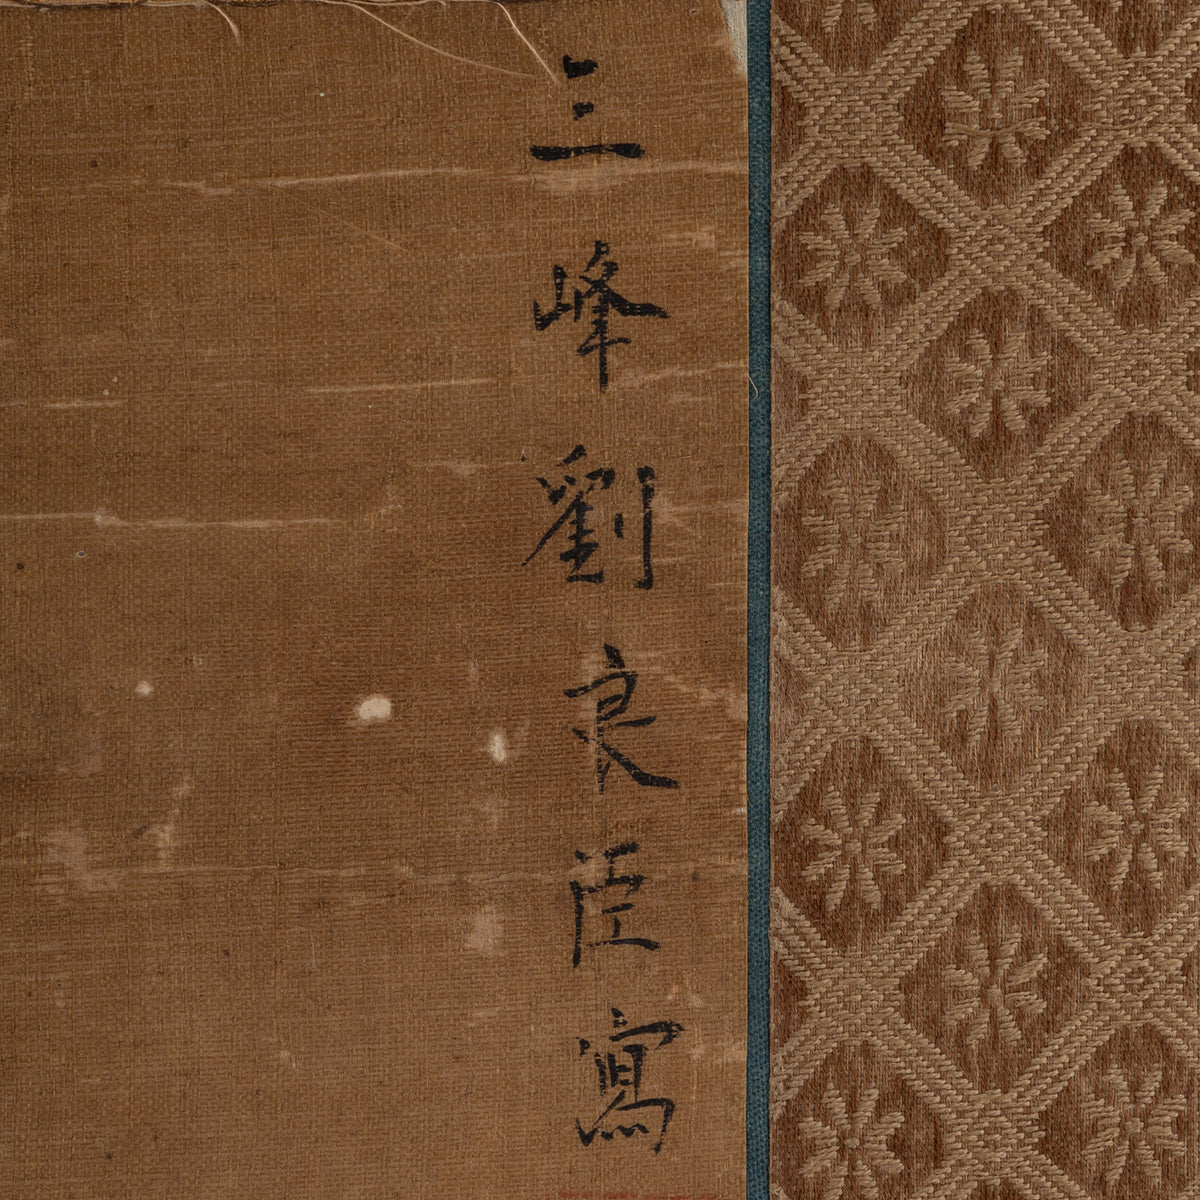 三峰劉良臣寫